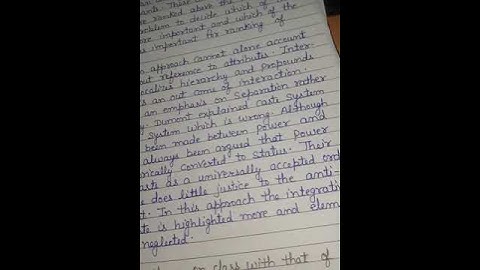 are ranked above the
problem to decide which of
more important and which of the
is important for ranking of
approach cannot alone account
out reference to attributes. Inter-
localizes hierarchy and Propounds
is an out come of interaction.
an emphasis on Separation rather
y. Dumont explained caste System
System which is wrong. Although
been made between Power and
always been argued that Power
onically converted to Status. Their
as a universally accepted ord
does little justice to the anti-
t. In this approach the integrati
is highlighted more and elem
neglected.
class with that of